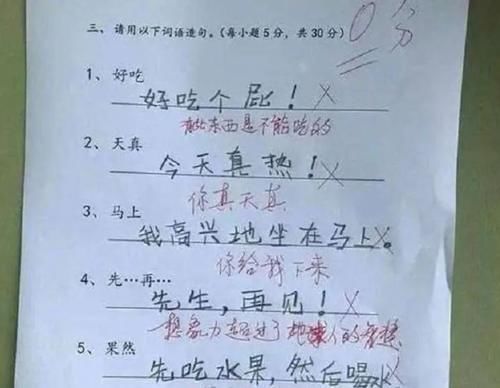 0分
三、请用以下词语造句。(每小题5分，共30分)
1、好吃
好吃个屁！
有些东西是不能吃的
2、天真
今天真热！
你真天真
3、马上
我高兴地坐在马上。
你给我下来
4、先…再…
先生，再见！
想象力超过了地球人的
5、果然
先吃水果，然后喝水